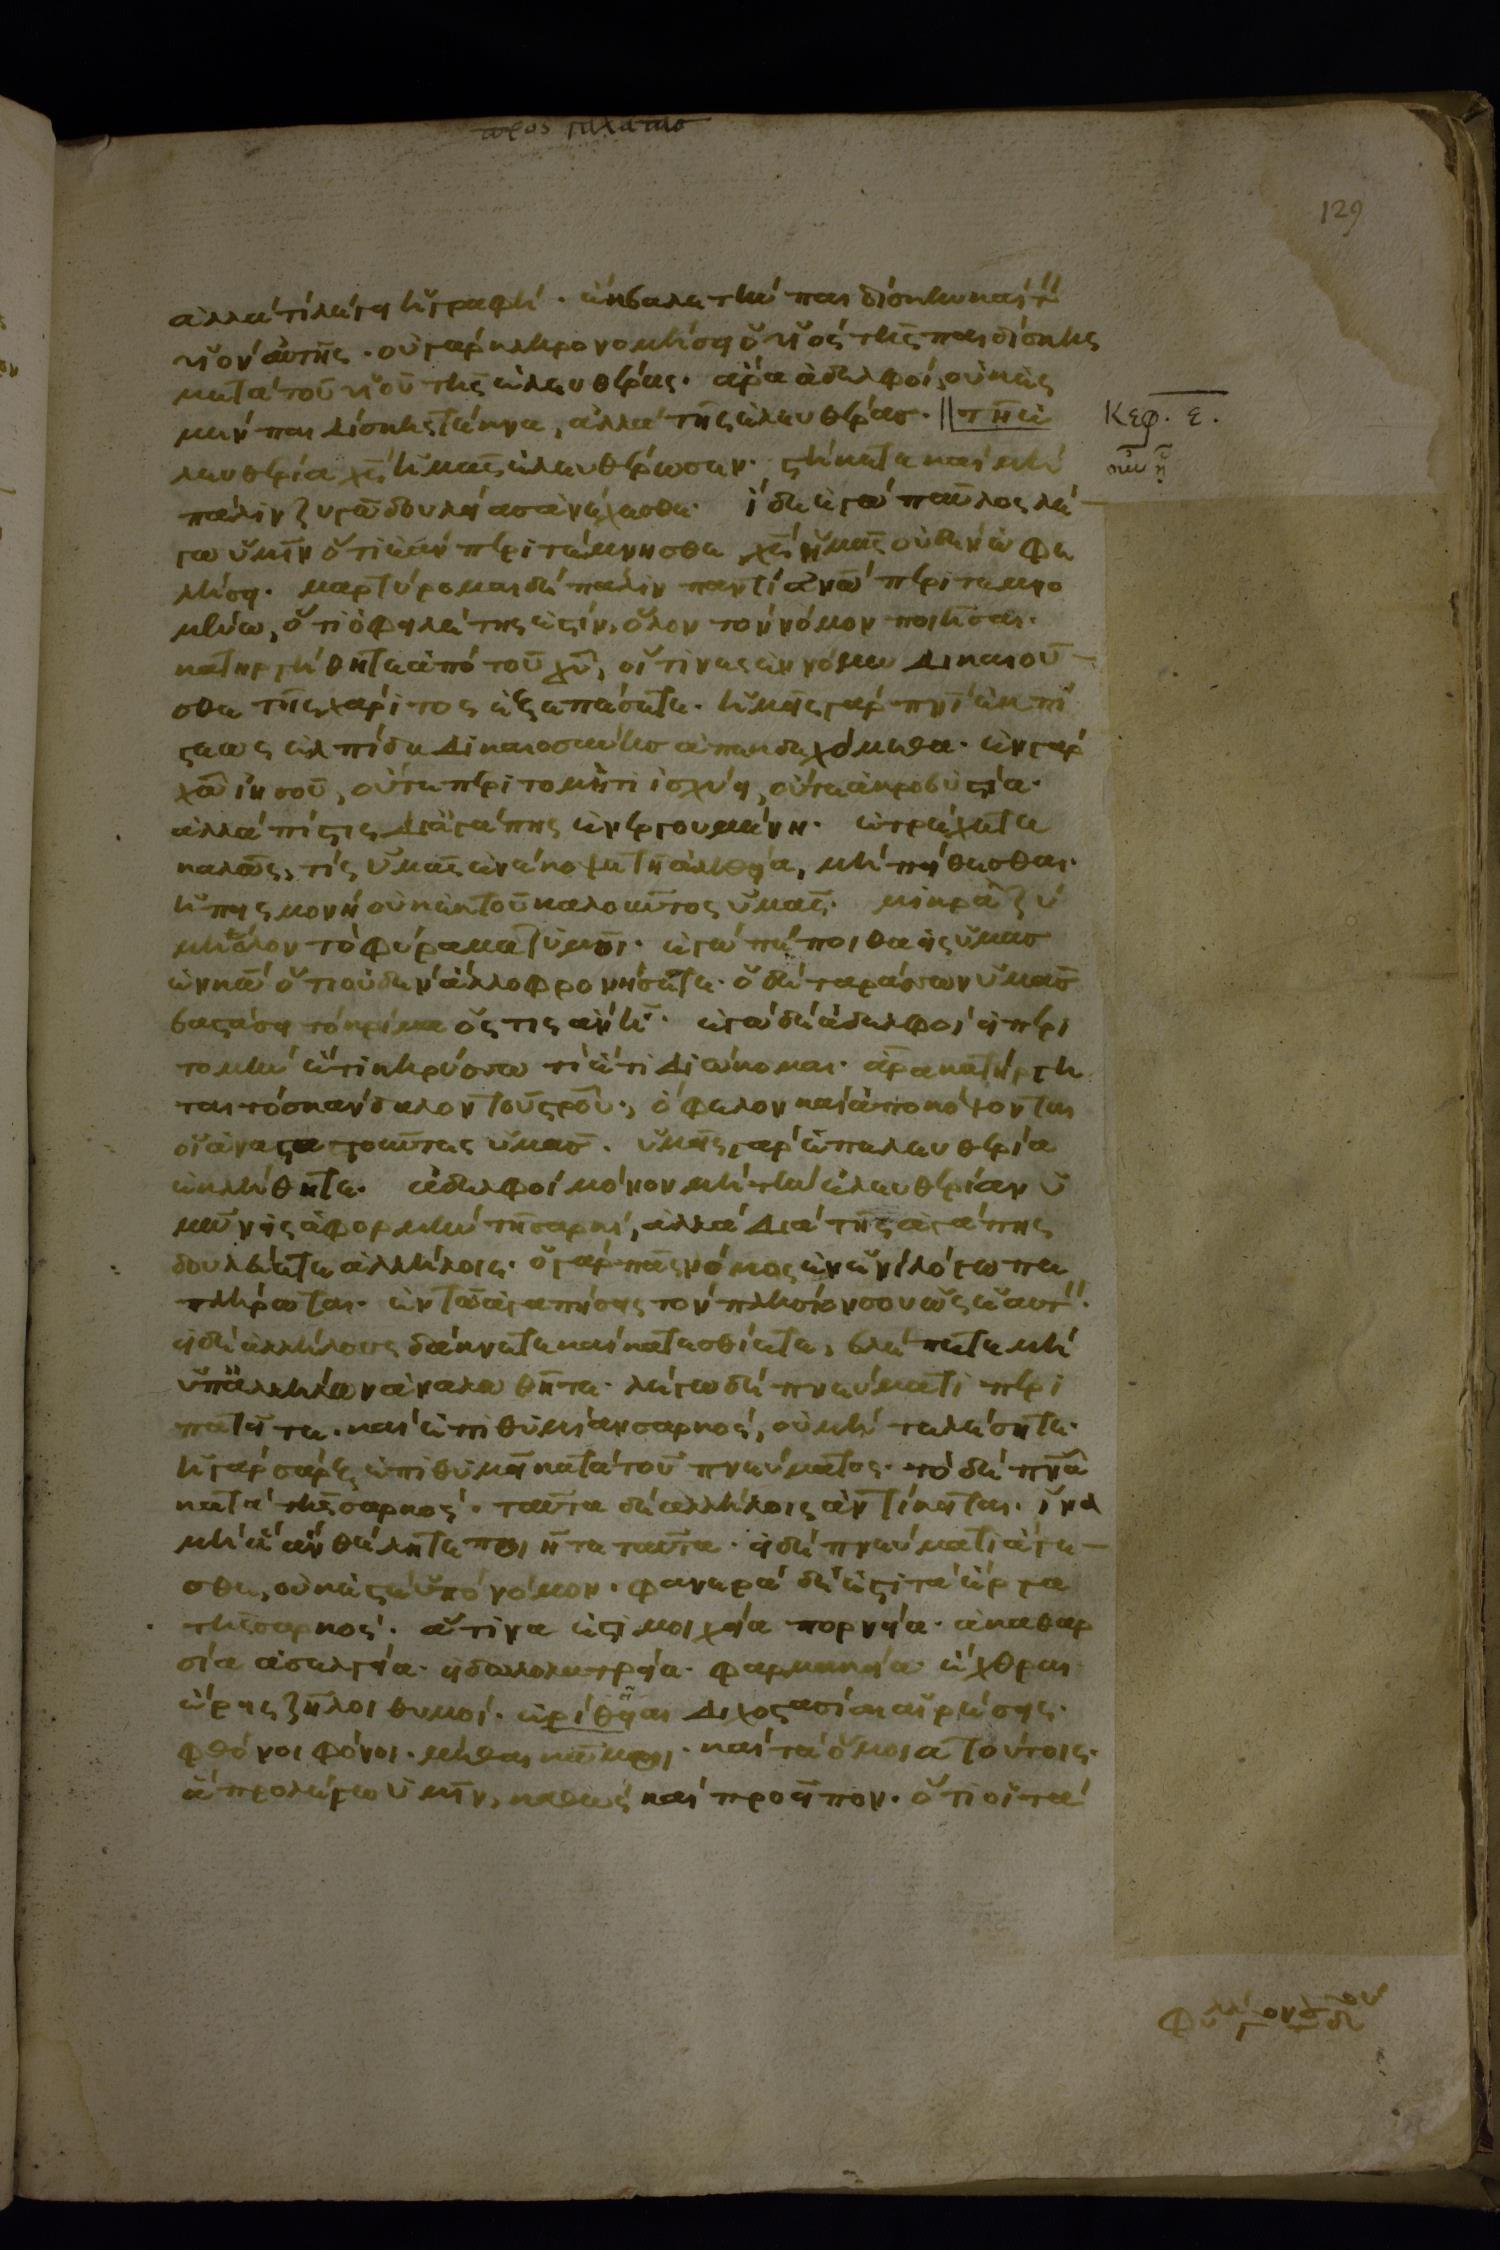 προς γαλατας
129
ἀλλὰ τί λέγει ἡ γραφή· ἔκβαλε τὴν παιδίσκην καὶ τὸν
υἱὸν αὐτῆς· οὐ γὰρ κληρονομήσει ὁ υἱὸς τῆς παιδίσκης
μετὰ τοῦ υἱοῦ τῆς ἐλευθέρας· ἄρα ἀδελφοί, οὐκ ἐς
μὲν παιδίσκης τέκνα, ἀλλὰ τῆς ἐλευθέρας· || τῇ ἐ
Κεφ. ε.
λευθερία χς ἡμᾶς ἐλευθέρωσεν· στήκετε καὶ μὴ
πάλιν ζυγῶ δουλείας ἀνέχεσθε· ἴδε ἐγὼ παῦλος λέ
γω ὑμῖν ὅτι ἐὰν περιτέμνησθε χς ὑμᾶς οὐδὲν ὠφε
λήσει· μαρτύρομαι δὲ πάλιν παντὶ ἀνω περιτεμνο
μένω, ὅτι ὀφειλέτης ἐστὶν, ὅλον τὸν νόμον ποιῆσαι·
κατηργήθητε ἀπὸ τοῦ χυ, οἵτινες ἐν νόμω δικαιοῦ
σθε τῆς χάριτος ἐξεπέσατε· ἡμεῖς γὰρ πνι ἐκ πί
στεως ἐλπίδα δικαιοσύνης ἀπεκδεχόμεθα· ἐν γὰρ
χω ἰησοῦ, οὔτε περιτομή τι ἰσχύει, οὔτε ἀκροβυστία·
ἀλλὰ πίστις δι ἀγάπης ἐνεργουμένη· ἐτρέχετε
καλῶς, τίς ὑμᾶς ἐνέκοψε τῇ ἀληθεία, μὴ πείθεσθαι·
ἡ πεισμονὴ οὐκ ἐκ τοῦ καλοῦντος ὑμᾶς· μικρὰ ζύ
μη ὅλον τὸ φύραμα ζυμοῖ· ἐγὼ πέποιθα εἰς ὑμᾶς
ἐν κω ὅτι οὐδὲν ἄλλο φρονήσετε· ὁ δὲ ταράσσων ὑμᾶς
βαστάσει τὸ κρίμα ὅστις ἂν ἦ· ἐγὼ δὲ ἀδελφοί εἰ περι
τομὴν ἔτι κηρύσσω τί ἔτι διώκομαι· ἄρα κατήργη
ται τὸ σκάνδαλον τοῦ σρου·, ὄφελον καὶ ἀποκόψονται
οἱ ἀναστατοῦντες ὑμᾶς· ὑμεῖς γὰρ ἐπ ἐλευθερία
ἐκλήθητε· ἀδελφοί μόνον μὴ τὴν ἐλευθερίαν ὑ
μῶν εἰς ἀφορμὴν τῇ σαρκί, ἀλλὰ διὰ τῆς ἀγάπης
δουλεύετε ἀλλήλοις· ὁ γὰρ πᾶς νόμος ἐν ἑνὶ λόγω πε
πλήρωται· ἐν τῶ ἀγαπήσεις τὸν πλησίον σου ὡς ἑαυτόν·
εἰ δὲ ἀλλήλους δάκνετε καὶ κατεσθίετε, βλέπετε μὴ
ὑπ ἀλλήλων ἀναλωθῆτε· λέγω δὲ πνεύματι περι
πατεῖτε· καὶ ἐπιθυμίαν σαρκός, οὐ μὴ τελέσητε·
ἡ γὰρ σὰρξ ἐπιθυμεῖ κατὰ τοῦ πνεύματος· τὸ δὲ πνα
κατὰ τῆς σαρκός· ταῦτα δὲ ἀλλήλοις ἀντίκειται· ἵνα
μὴ ἃ ἂν θέλητε ποιῆτε ταῦτα· εἰ δὲ πνεύματι ἄγε
σθε, οὐκ ἐστὲ ὑπὸ νόμον· φανερὰ δέ ἐστι τὰ ἔργα
τῆς σαρκός· ἅτινα ἐστι μοιχεία πορνεία· ἀκαθαρ
σία ἀσέλγεια· εἰδωλολατρεία· φαρμακεία· ἔχθραι
ἔρεις ζῆλοι θυμοί· ἐριθεῖαι διχοστασίαι αἱρέσεις·
φθόνοι φόνοι· μέθαι κῶμοι· καὶ τὰ ὅμοια τούτοις·
ἃ προλέγω ὑμῖν, καθὼς καὶ προεῖπον· ὅτι οἱ τὰ